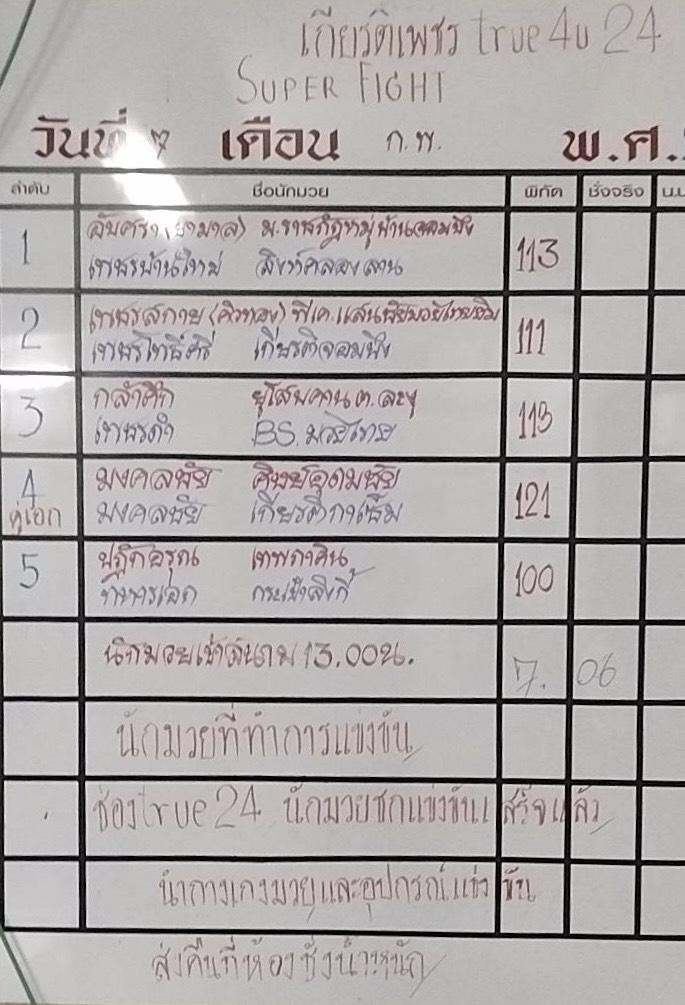 เกียรติเพชร true4u 24
SUPER FIGHT
วันที่ 7 เดือน ก.พ. พ.ศ.
ลำดับ ชื่อนักมวย พิกัด ชั่งจริง น.น
1 ม.ราชภัฏหมู่บ้านจอมบึง 113
เพชรบ้านใหม่ สิงห์คลองลาน
2 เพชรสกาย (คิวทอง) พีเค.แสนชัยมวยไทยยิม 111
เพชรโพธิ์ศรี เกียรติจอมบึง
3 กล้าศึก 113
เพชรดำ BS.มวยไทย
4 มงคลชัย ศิษย์อุดมชัย 121
คู่เอก มงคลชัย เกียรติกาเซ็ม
5 เทพภาคิน 100
ทหารเอก
นักมวยเข้าสนาม 13.00น. 7. 06
นักมวยที่ทำการแข่งขัน
ช่อง true24 นักมวยชกแข่งขันเสร็จแล้ว
นำกางเกงมวยและอุปกรณ์แข่งขัน
ส่งคืนที่ห้องชั่งน้ำหนัก